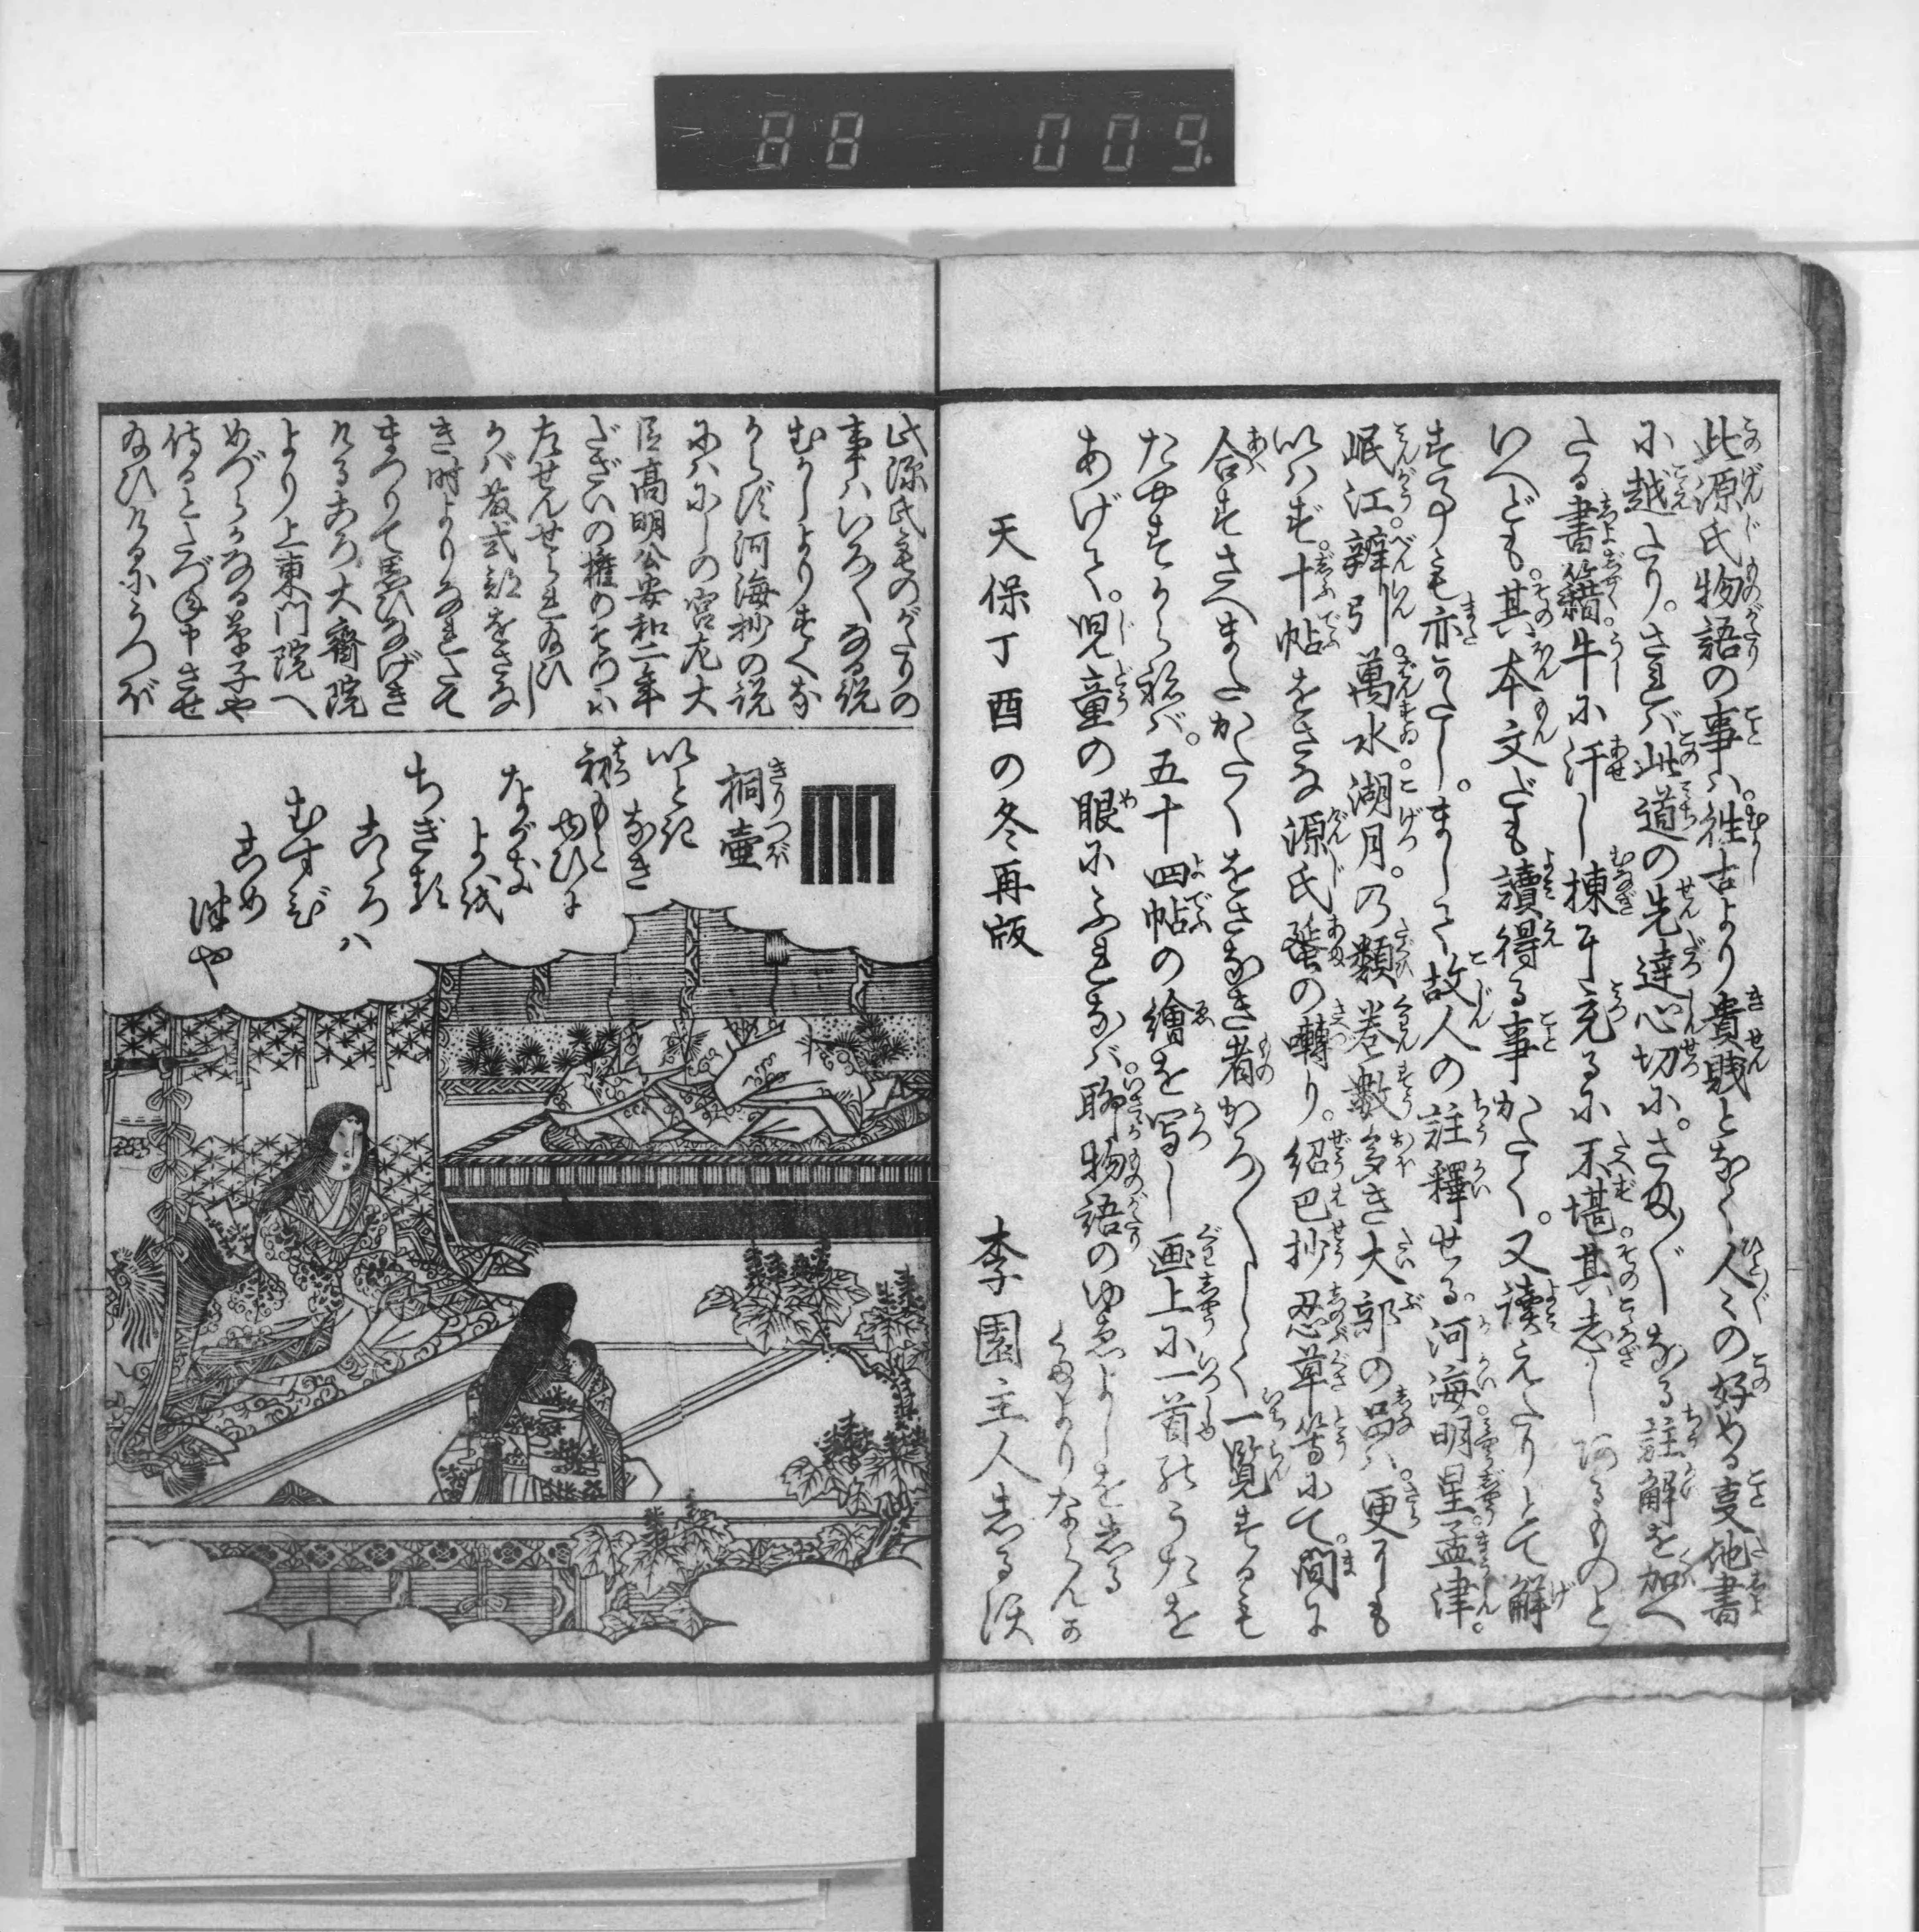 88 009
此源氏物語の事ハ。往古より貴賤となく人々の好める事他書
に越たり。されバ此道の先達心切に。さま〴〵なる註解を加へ
たる書籍。牛に汗し棟に充るに不堪。其志しあるものと
いへども。其本文だも讀得る事かたく。又讀えたりとて解
する事も亦かたし。まして故人の註釋せる。河海。明星。孟津。
岷江。辨引。萬水。湖月。の類巻數多き大部の品ハ。更にも
いはず。十帖をさな源氏蜑の囀り。紹巴抄忍草等にて。間に
合すさへまたかたくをさなき者かろ〴〵しく一覧するも
たやすからねバ。五十四帖の繪を写し画上に一首のうたを
あげて。児童の眼にふれなバ。聊物語のゆゑよしをしる
くまよりならんか
天保丁酉の冬再版
李園主人しる須
此源氏ものがたりの
事ハいろ〳〵なる説
むかしよりすくな
からず河海抄の説
にハにしの宮左大
臣高明公安和二年
だざいの權のそつに
左せんせられ給ひし
かバ藤式部をさな
き時よりなれたて
まつりて思ひなげき
けるころ大齋院
より上東門院へ
めづらかなる草子や
侍るとたづね申させ
給ひけるにうつぼ
桐壷
きりつぼ
いとき
なき
初もと
ゆひに
ながき
よを
ちぎる
こゝろハ
むすび
こめ
つや